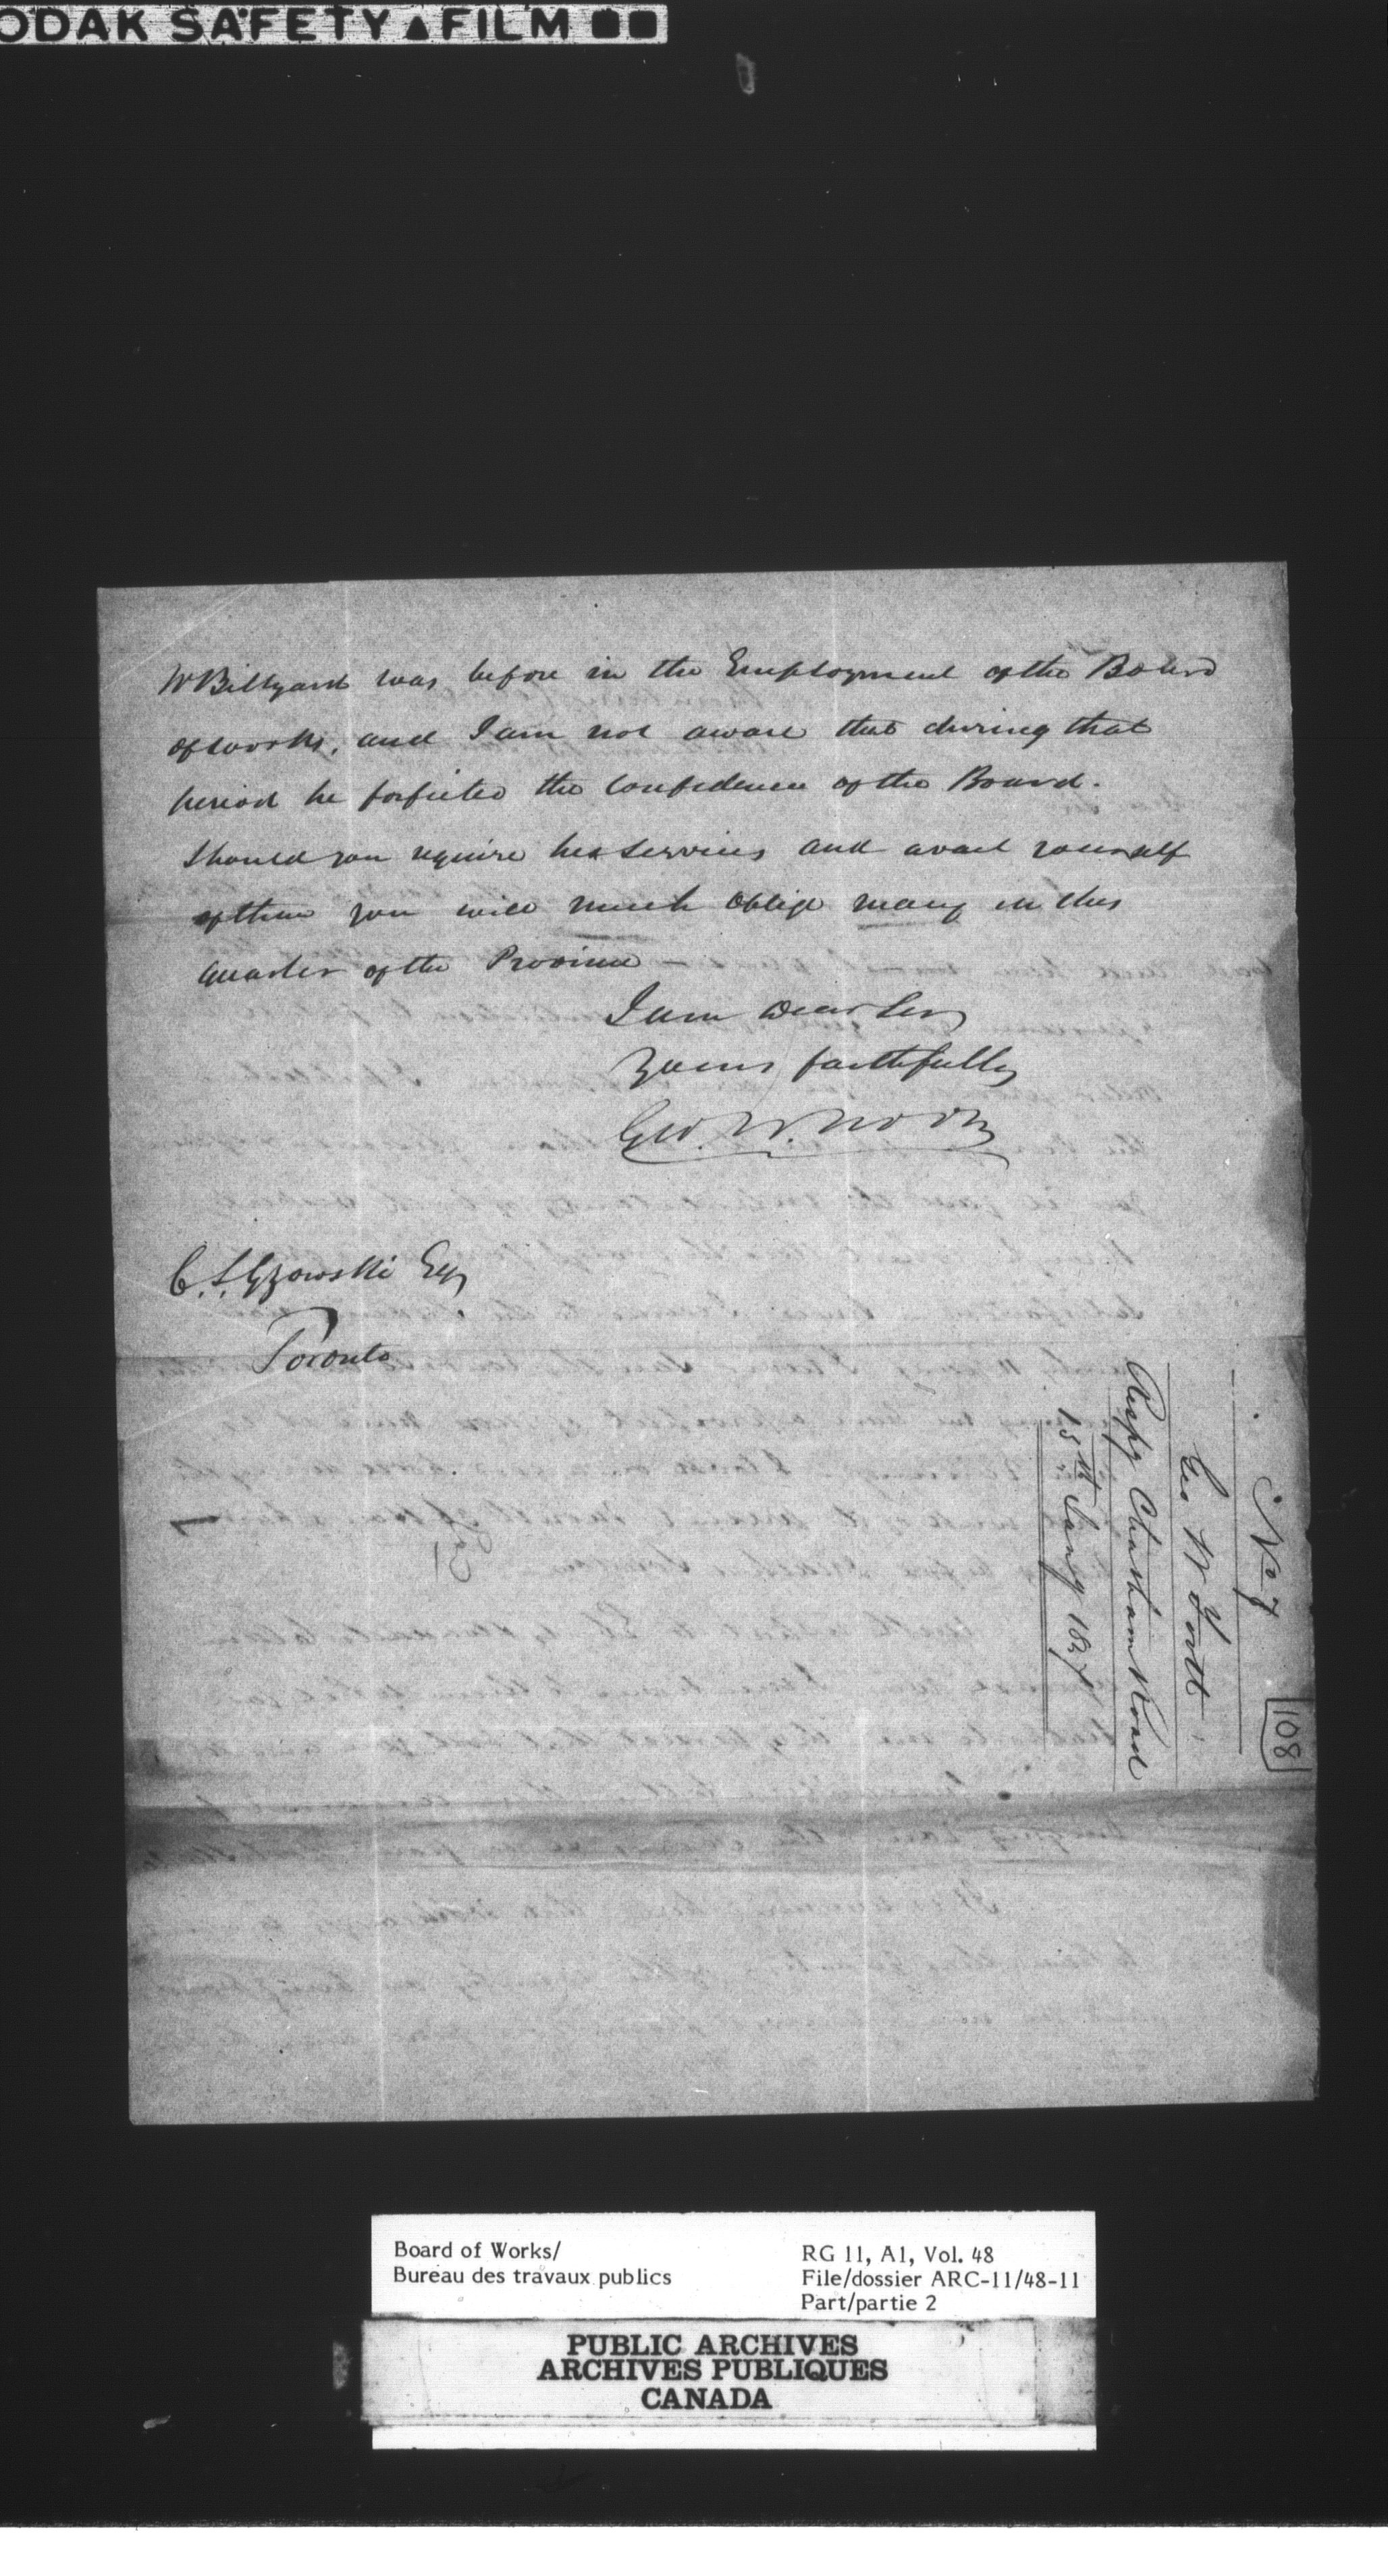 ODAK SAFETY ▲ FILM
W Billyard was before in the Employment of the Board
of works, and I am not aware that during that
period he forfieted the confidence of the Board.
Should you require his services and avail yourself
of them you will much oblige many in this
quarter of the Province —
I am Dear Sir
Yours faithfully
Geo. W.
C. S. Gzowski Esq
Toronto
No 7
108
Geo W
Respg Chatham Road
15th Jany 184
Board of Works/
Bureau des travaux publics
RG 11, A1, Vol. 48
File/dossier ARC-11/48-11
Part/partie 2
PUBLIC ARCHIVES
ARCHIVES PUBLIQUES
CANADA